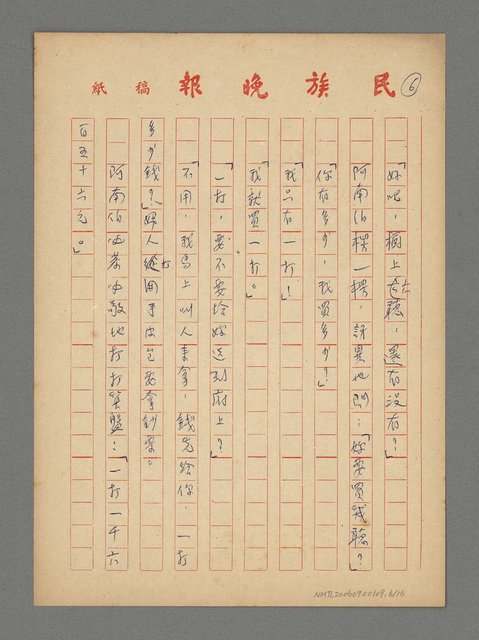 民族晚報 稿紙
6
「好吧,櫥上六聽,還有沒有?」
阿南伯楞一楞,訝異地問:「妳要買幾聽?」
「你有多少,我買多少?」
「我只有一打!」
「我就買一打。」
「一打,要不要給妳送到府上?」
「不用,我馬上叫人來拿,錢先給你,一打
多少錢?」婦人打開手皮包要拿鈔票。
阿南伯必恭必敬地打打算盤:「一打一千六
百五十六元。」
NMTL20060900109.6/16